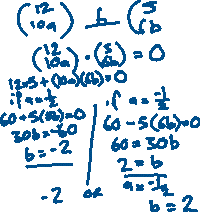 (12 10a) b (5 6b
(12 10a) · (5 6b) = 0
12×5 + (10a)(6b) = 0
if a = 1/2
60 + 5(6b) = 0
30b = -60
b = -2
if a = -1/2
60 - 5(6b) = 0
60 = 30b
2 = b
a = -1/2
b = 2
-2 or